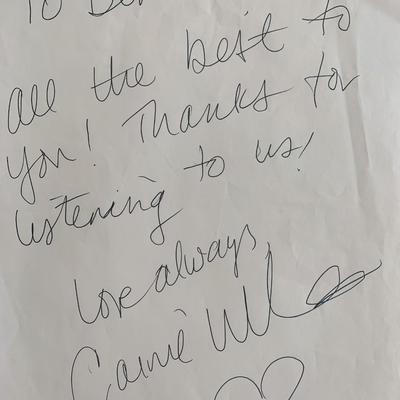 To Ben
all the best to
you! Thanks for
listening to us!
Love always,
Carnie